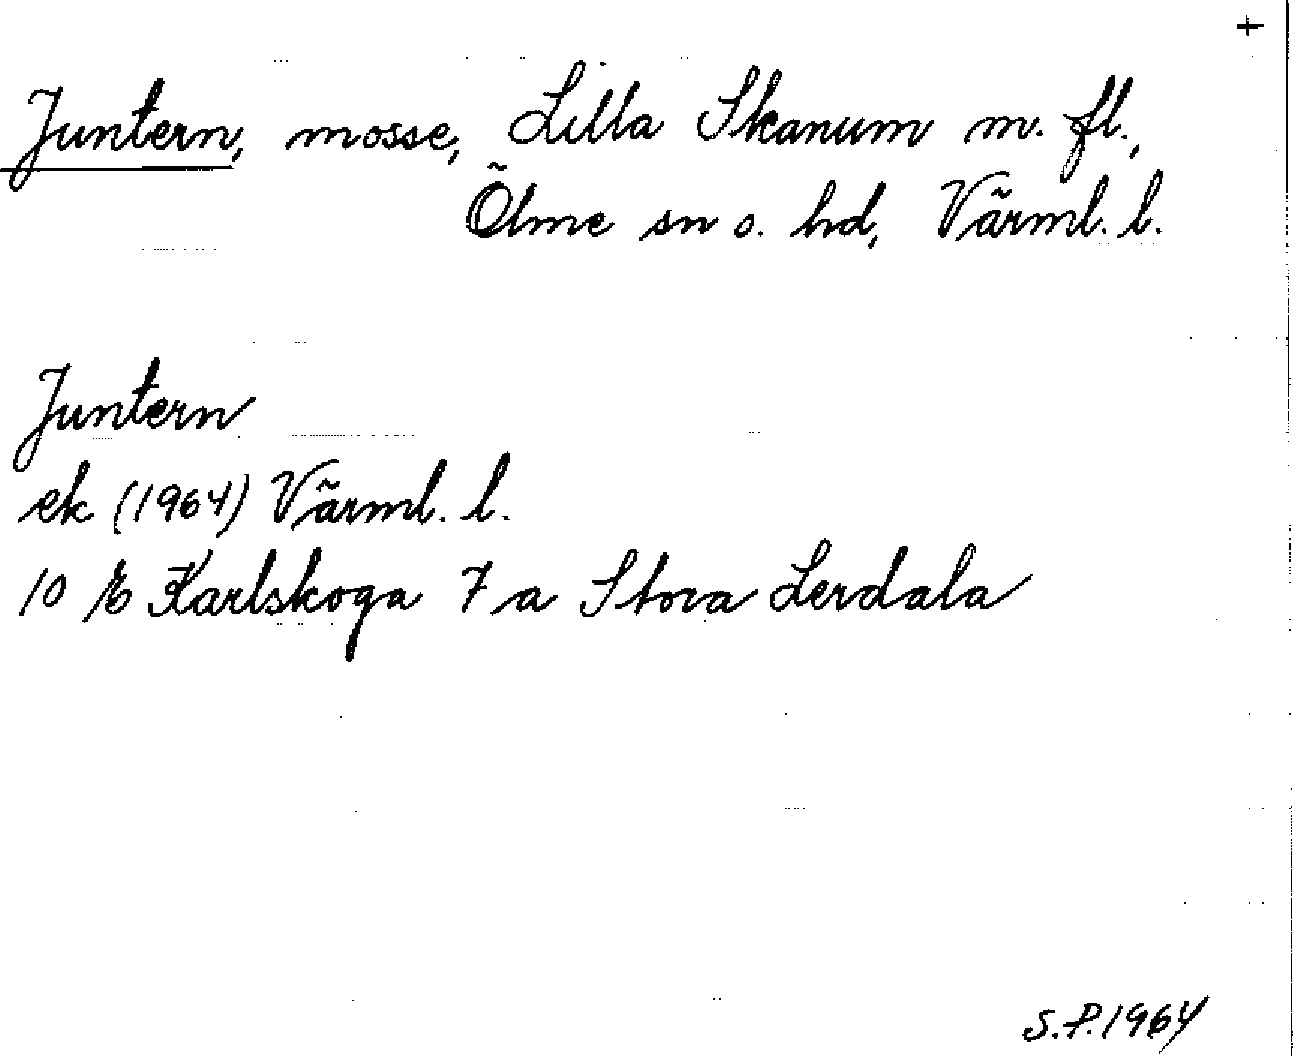 +
Juntern, mosse, Lilla Skanum m. fl.,
Ölme sn o. hd, Värml. l.
Juntern
ek (1964) Värml. l.
10 E Karlskoga 7 a Stora Lerdala
S.P. 1964